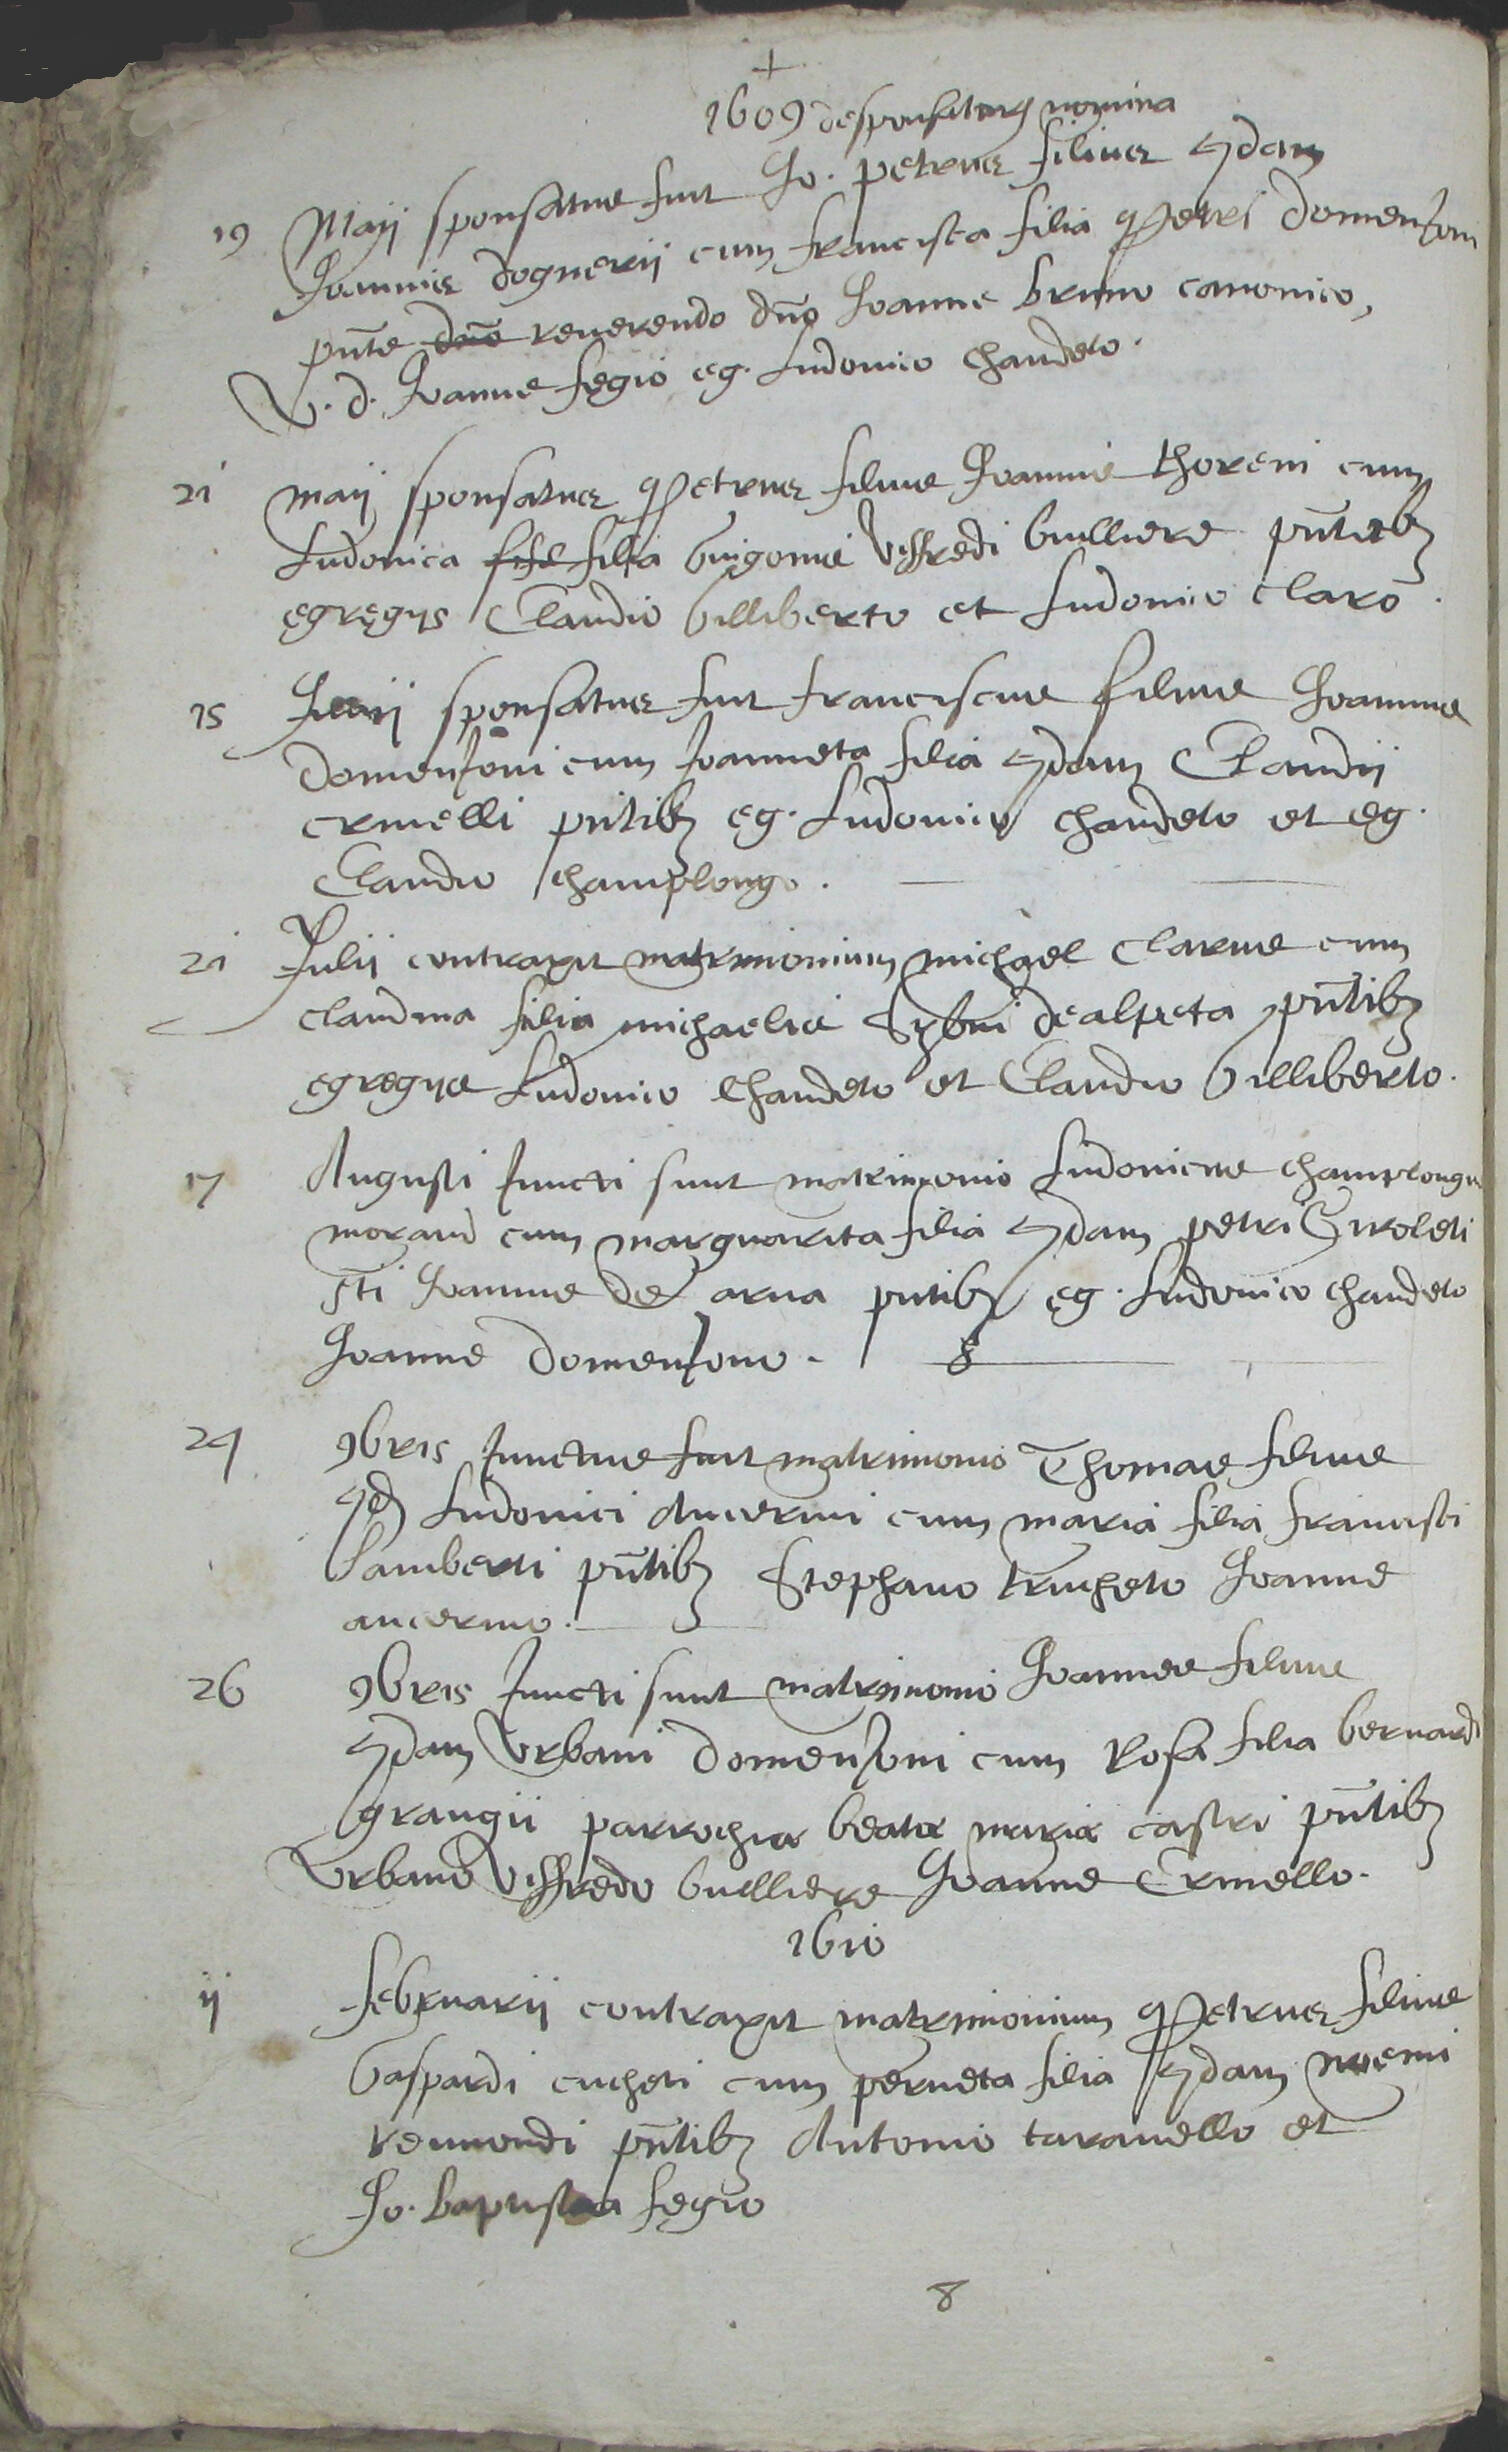 +
1609 desponsatorum nomina
19 Maij sponsatus fuit Jo. petrus filius qdam
Joannis dognerij cum francisca filia Petri Domenzoni
pnte dno reuerendo dno Joanne bruno canonico,
V. d. Joanne segio eg. Ludouico chaudeto.
21 maij sponsatus Petrus filius Joannis thoreni cum
Ludouica file filia Guigonis Viffredi bulliere pntibz
egregijs Claudio Gilliberto et Ludouico Claro.
15 Junij sponsatus fuit franciscus filius Joannis
Domenzoni cum Joanneta filia qdam Claudij
crinelli pntibz eg. Ludouico chaudeto et eg.
Claudio champlongo.
21 Julij contraxit matrimonium michael Clarus cum
claudina filia michaelis de alpeta pntibz
egregijs Ludouico Chaudeto et Claudio Gilliberto.
17 Augusti Juncti sunt matrimonio Ludouicus champlongus
morand cum marguarita filia qdam petri
sti Joannis de arua pntibz eg. Ludouico chaudeto
Joanne Domenzono. 8
24 9bris Junctus fuit matrimonio Thomas filius
qd Ludouici Ancermi cum maria filia francisci
Lamberti pntibz Stephano trucheto Joanne
ancermo.
26 9bris Juncti sunt matrimonio Joannes filius
qdam Vrbani Domenzoni cum Rosa filia bernardi
grangij parrochiæ beatæ mariæ castri pntibz
Vrbano Viffredo bulliere Joanne Crinello.
1610
ij februarij contraxit matrimonium Petrus filius
Gaspardi cucheti cum perneta filia qdam noemi
remondi pntibz Antonio tarauello et
Jo. baptista segio
8